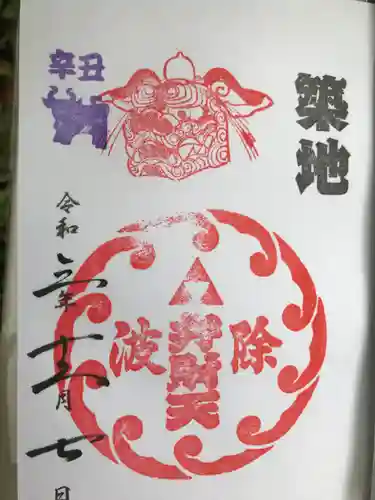 築地
辛丑
波除
弁財天
令和三年十二月七日